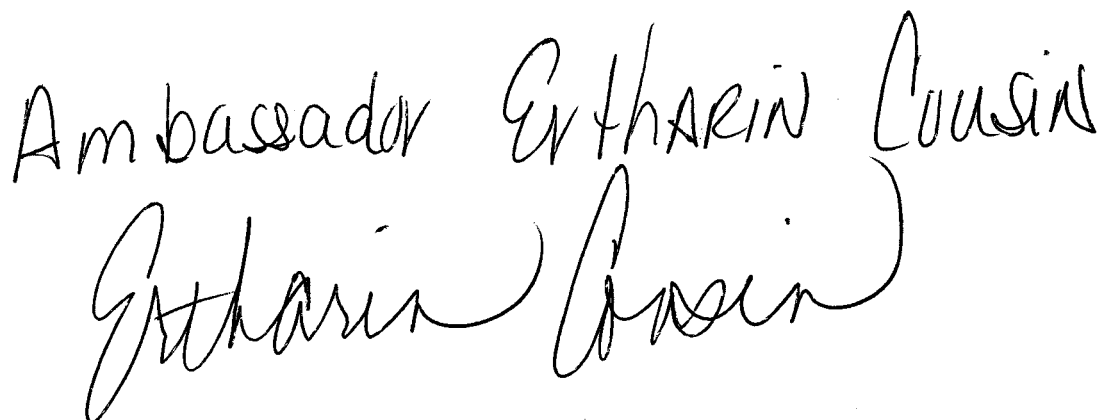 Ambassador Ertharin Cousin
Ertharin Cousin